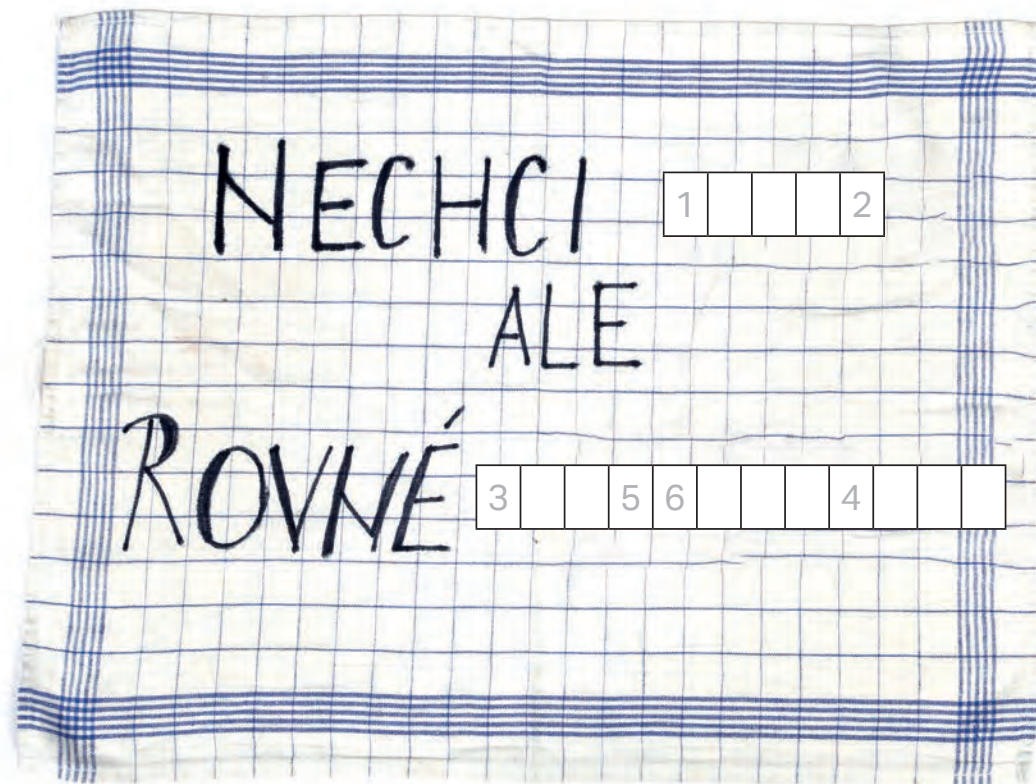 NECHCI 1 2
ALE
ROVNÉ 3 5 6 4